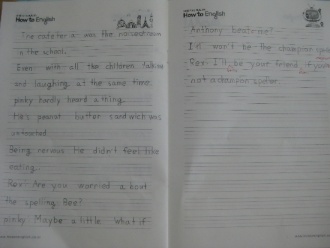 How to English
The cafeteria was the noisiest room
in the school.
Even with all the children talking
and laughing at the same time,
pinky hardly heard a thing.
He's peanut butter sandwich was
untouched.
Being nervous He didn't feel like
eating.
Rex: Are you worried about
the spelling Bee?
pinky: Maybe a little. What if
How to English
Anthony beats me?
I'd won't be the champion
Rex: I'll be your friend, if you
not a champion speller.